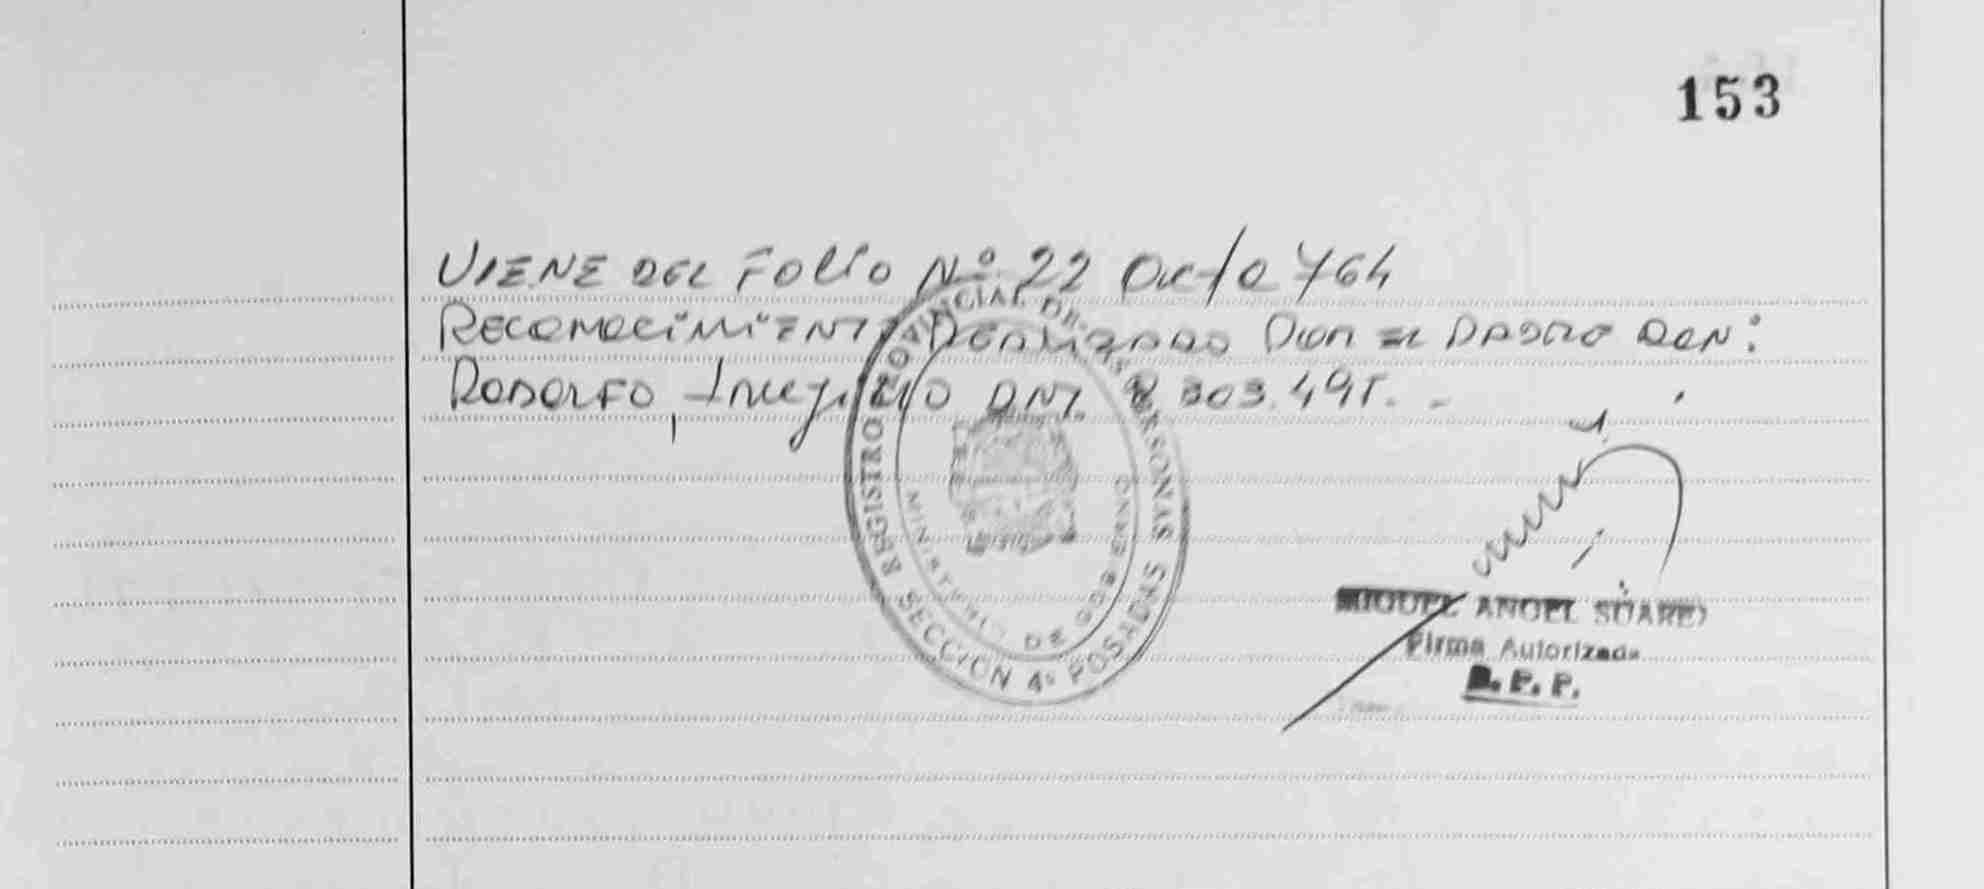 153
VIENE DEL FOLIO Nº 22 Acta 764
RECONOCIMIENTO REALIZADO POR EL PADRE DON:
RODOLFO, DNI. 8 303.495. -
REGISTRO PROVINCIAL DE LAS PERSONAS
MINISTERIO DE GOBIERNO
SECCION 4º POSADAS
MIGUEL ANGEL SUAREZ
Firma Autorizada
R. P. P.